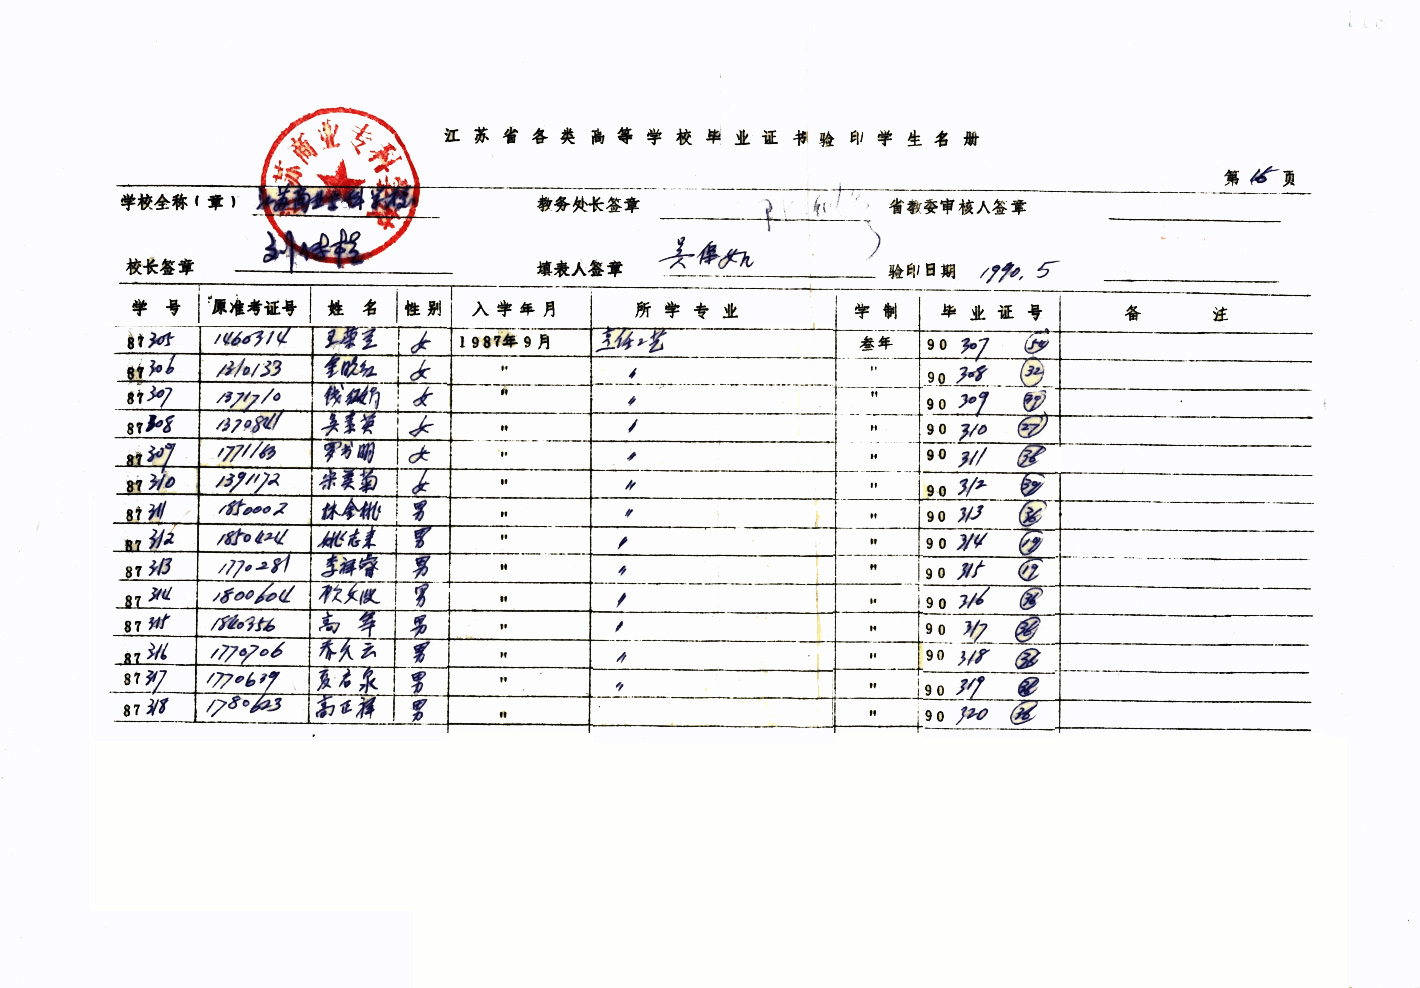 江苏省各类高等学校毕业证书验印学生名册
第 15 页
学校全称（章） 江苏商业专科学校 教务处长签章 省教委审核人签章
校长签章 填表人签章 验印日期 1990.5
学号 原准考证号 姓名 性别 入学年月 所学专业 学制 毕业证号 备注
87305 1460314 女 1987年9月 叁年 90 307
87306 1310133 女 〃 〃 〃 90 308 32
87307 1371710 女 〃 〃 〃 90 309
87308 1370841 吴素英 女 〃 〃 〃 90 310 27
87309 1771163 女 〃 〃 〃 90 311 36
87310 1391172 宋美菊 女 〃 〃 〃 90 312
87311 1850002 林金桃 男 〃 〃 〃 90 313 36
87312 1850424 姚志来 男 〃 〃 〃 90 314 19
87313 1770281 李祥睿 男 〃 〃 〃 90 315 19
87314 1800604 男 〃 〃 〃 90 316 36
87315 1840356 高 男 〃 〃 〃 90 317 36
87316 1770706 乔久云 男 〃 〃 〃 90 318 36
87317 1770639 夏启泉 男 〃 〃 〃 90 319
87318 1780623 高正祥 男 〃 〃 90 320 36